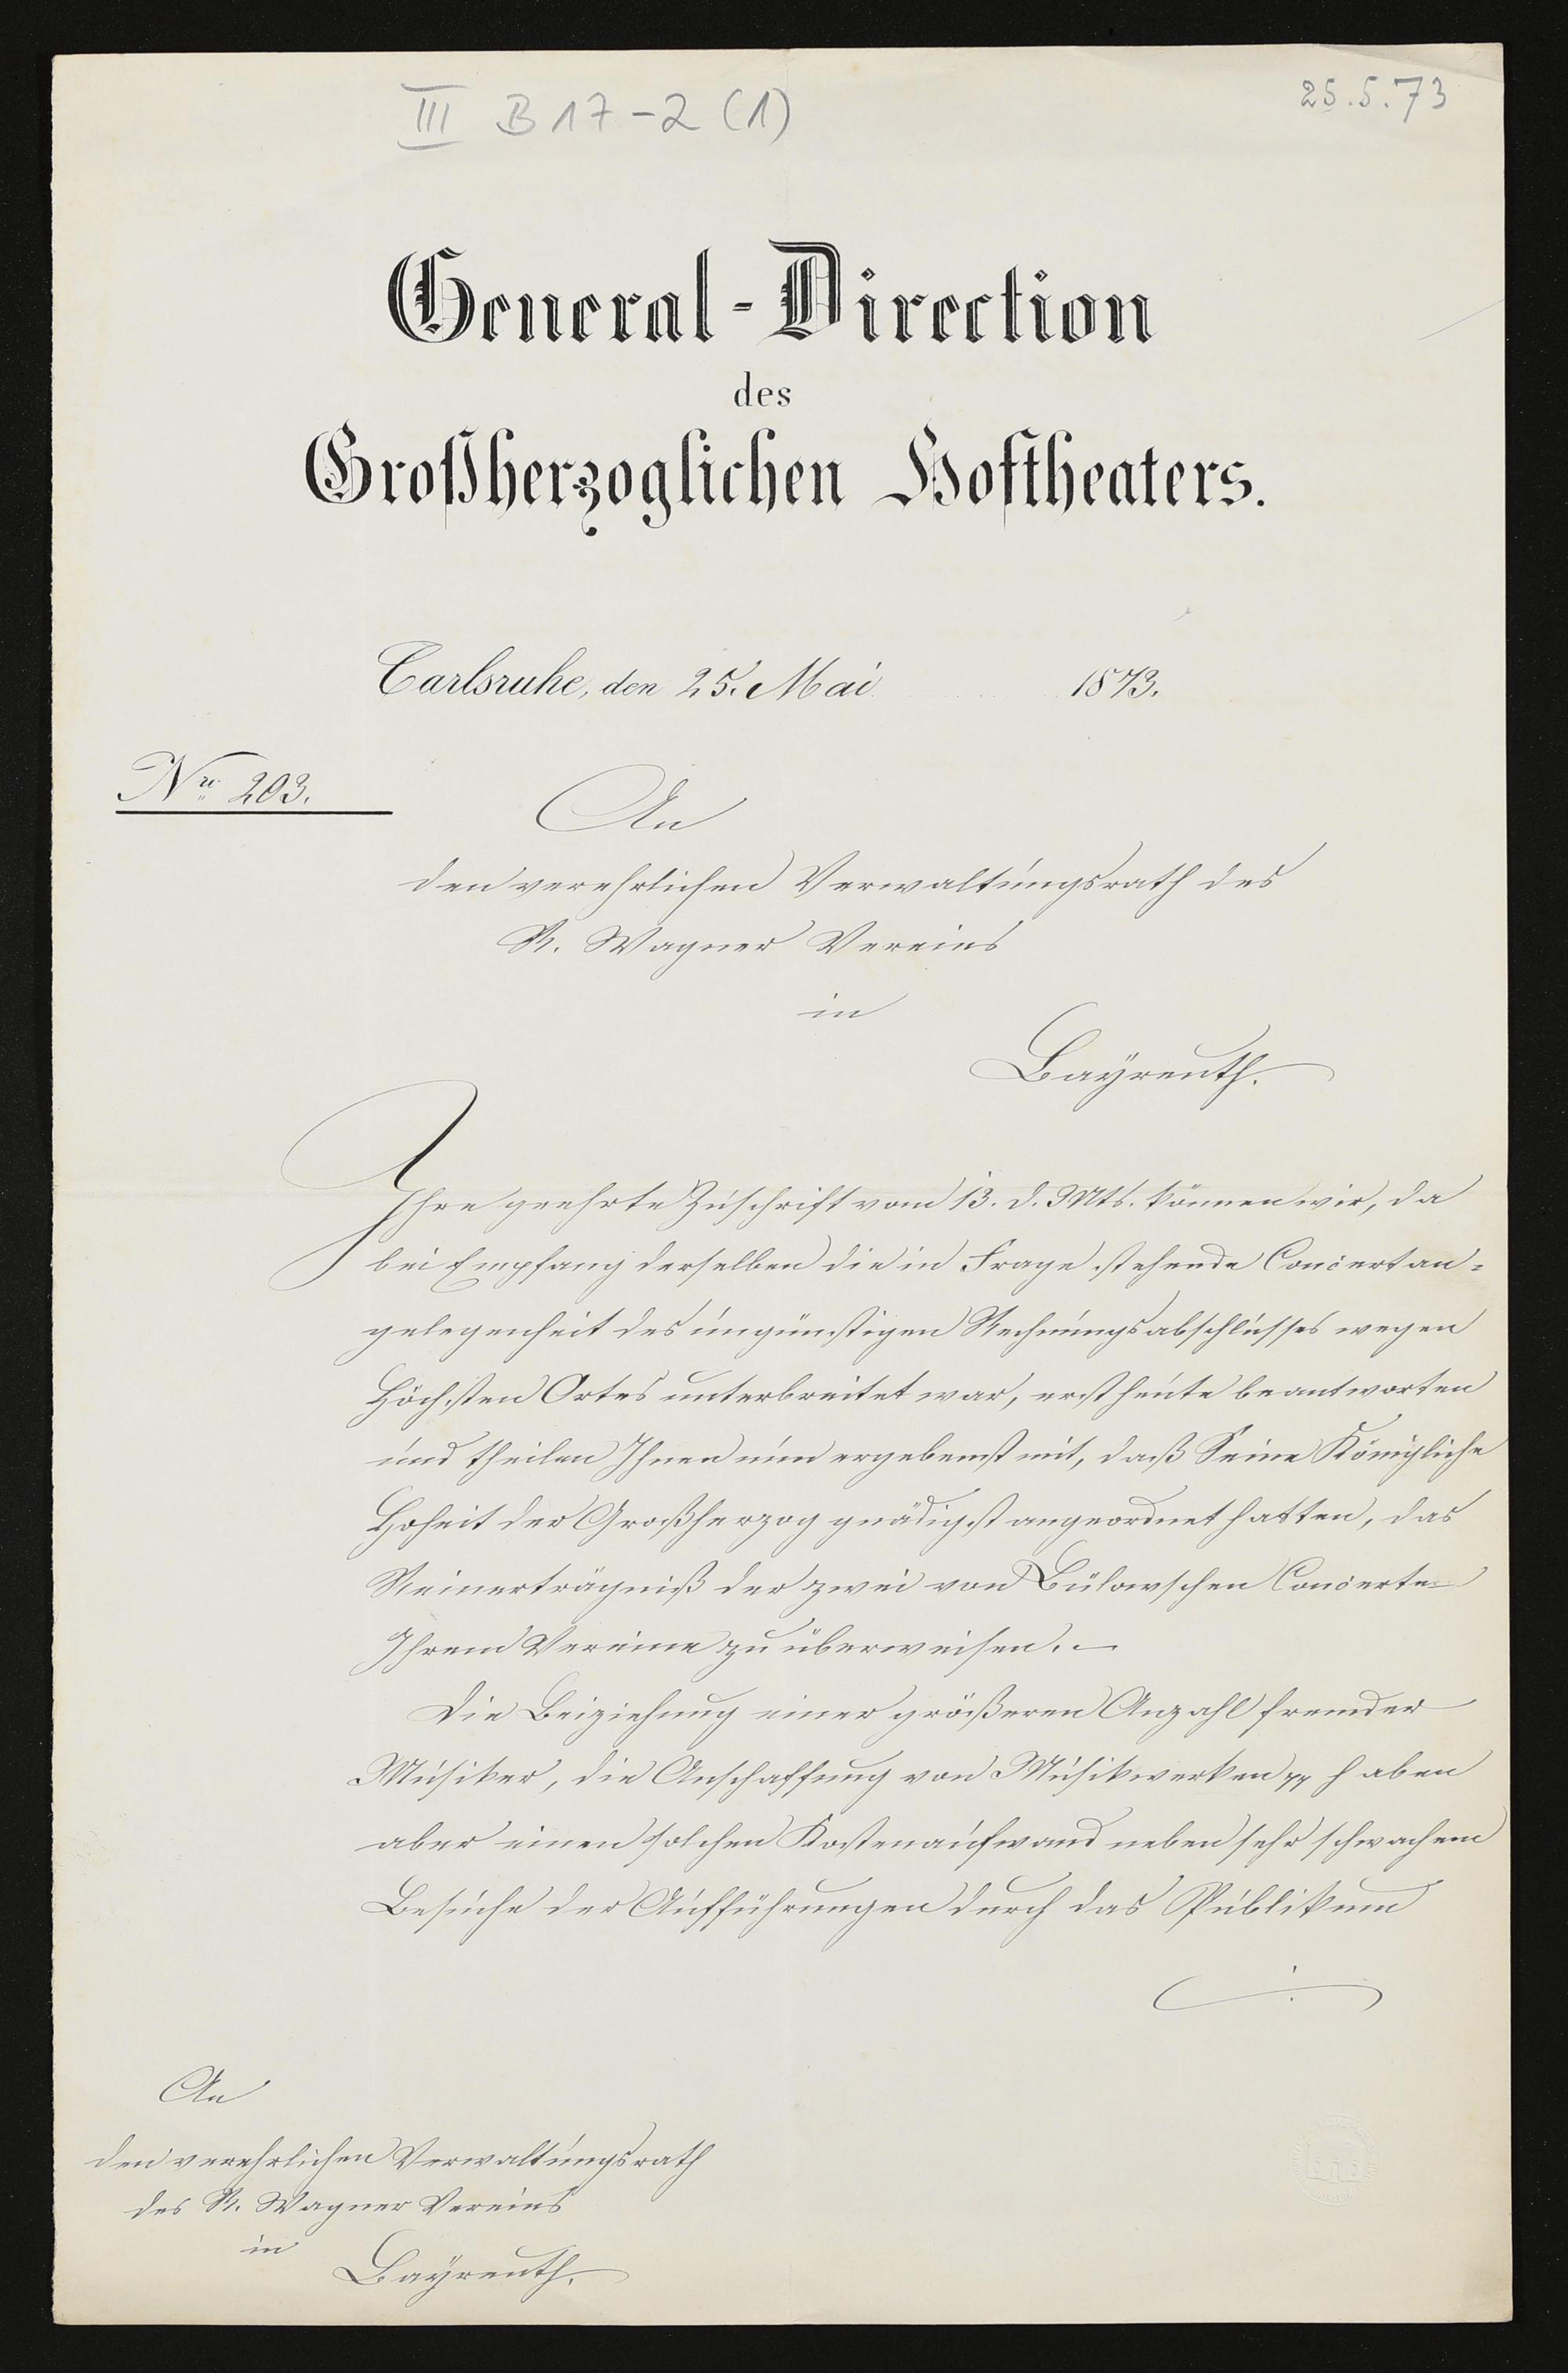 III B 17-2 (1)
25.5.73
General-Direction
des
Großherzoglichen Hoftheaters.
Carlsruhe, den 25. Mai 1873.
Nro 203.
An
den verehrlichen Verwaltungsrath des
R. Wagner Vereins
in
Bayreuth.
Ihre geehrte Zuschrift vom 13. d. Mts. können wir, da
bei Empfang derselben die in Frage stehende Concertan-
gelegenheit des ungünstigen Rechnungsabschlusses wegen
Höchsten Ortes unterbreitet war, erst heute beantworten
und theilen Ihnen nun ergebenst mit, daß Seine Königliche
Hoheit der Großherzog gnädigst angeordnet hatten, das
Reinerträgniß der zwei von Bülowschen Concerte
Ihrem Vereine zu überweisen. –
Die Beiziehung einer größeren Anzahl fremder
Musiker, die Anschaffung von Musikwerken pp haben
aber einen solchen Kostenaufwand neben sehr schwachem
Besuche der Aufführungen durch das Publikum
An
den verehrlichen Verwaltungsrath
des R. Wagner Vereins
in
Bayreuth.